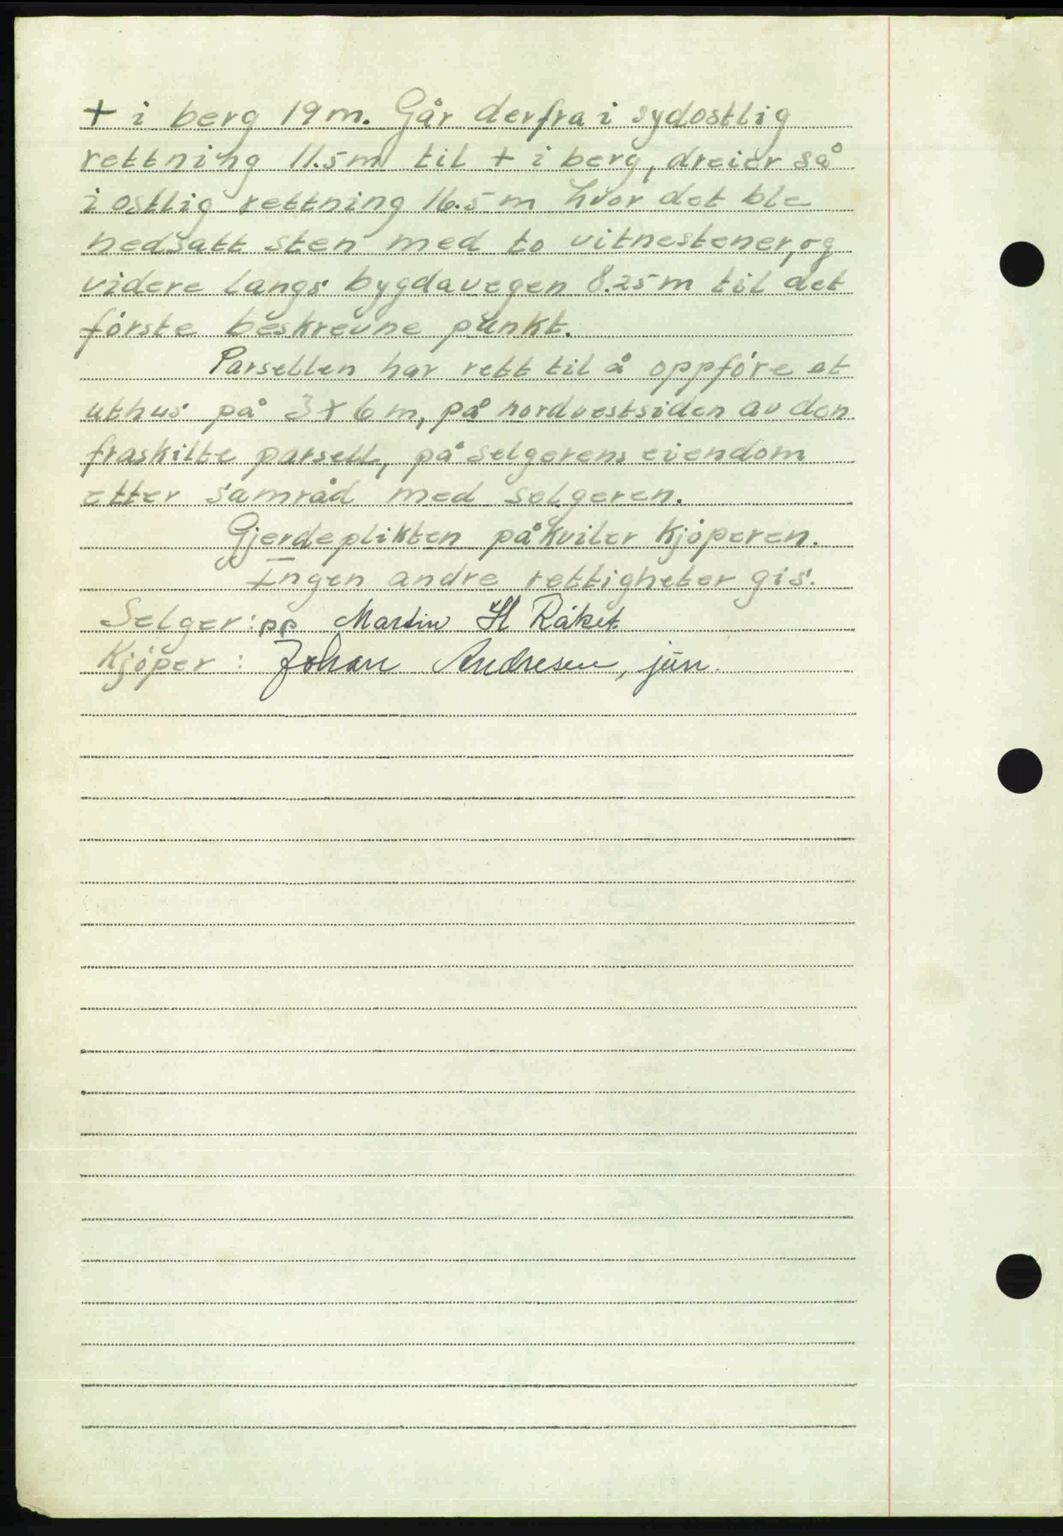 + i berg 19 m. Går derfra i sydostlig
rettning 11.5 m til + i berg, dreier så
i ostlig rettning 16.5 m hvor det ble
nedsatt sten med to vitnestener, og
videre langs bygdavegen 8.25 m til det
förste beskrevne punkt.
Parsellen har rett til å oppföre et
uthus på 3 x 6 m, på nordvestsiden av den
fraskilte parsell, på selgerens eiendom
etter samråd med selgeren.
Gjerdeplikten påkviler kjöperen.
Ingen andre rettigheter gis.
Selger: pp Martin H Råket
Kjöper: Johan Andresen, jun.